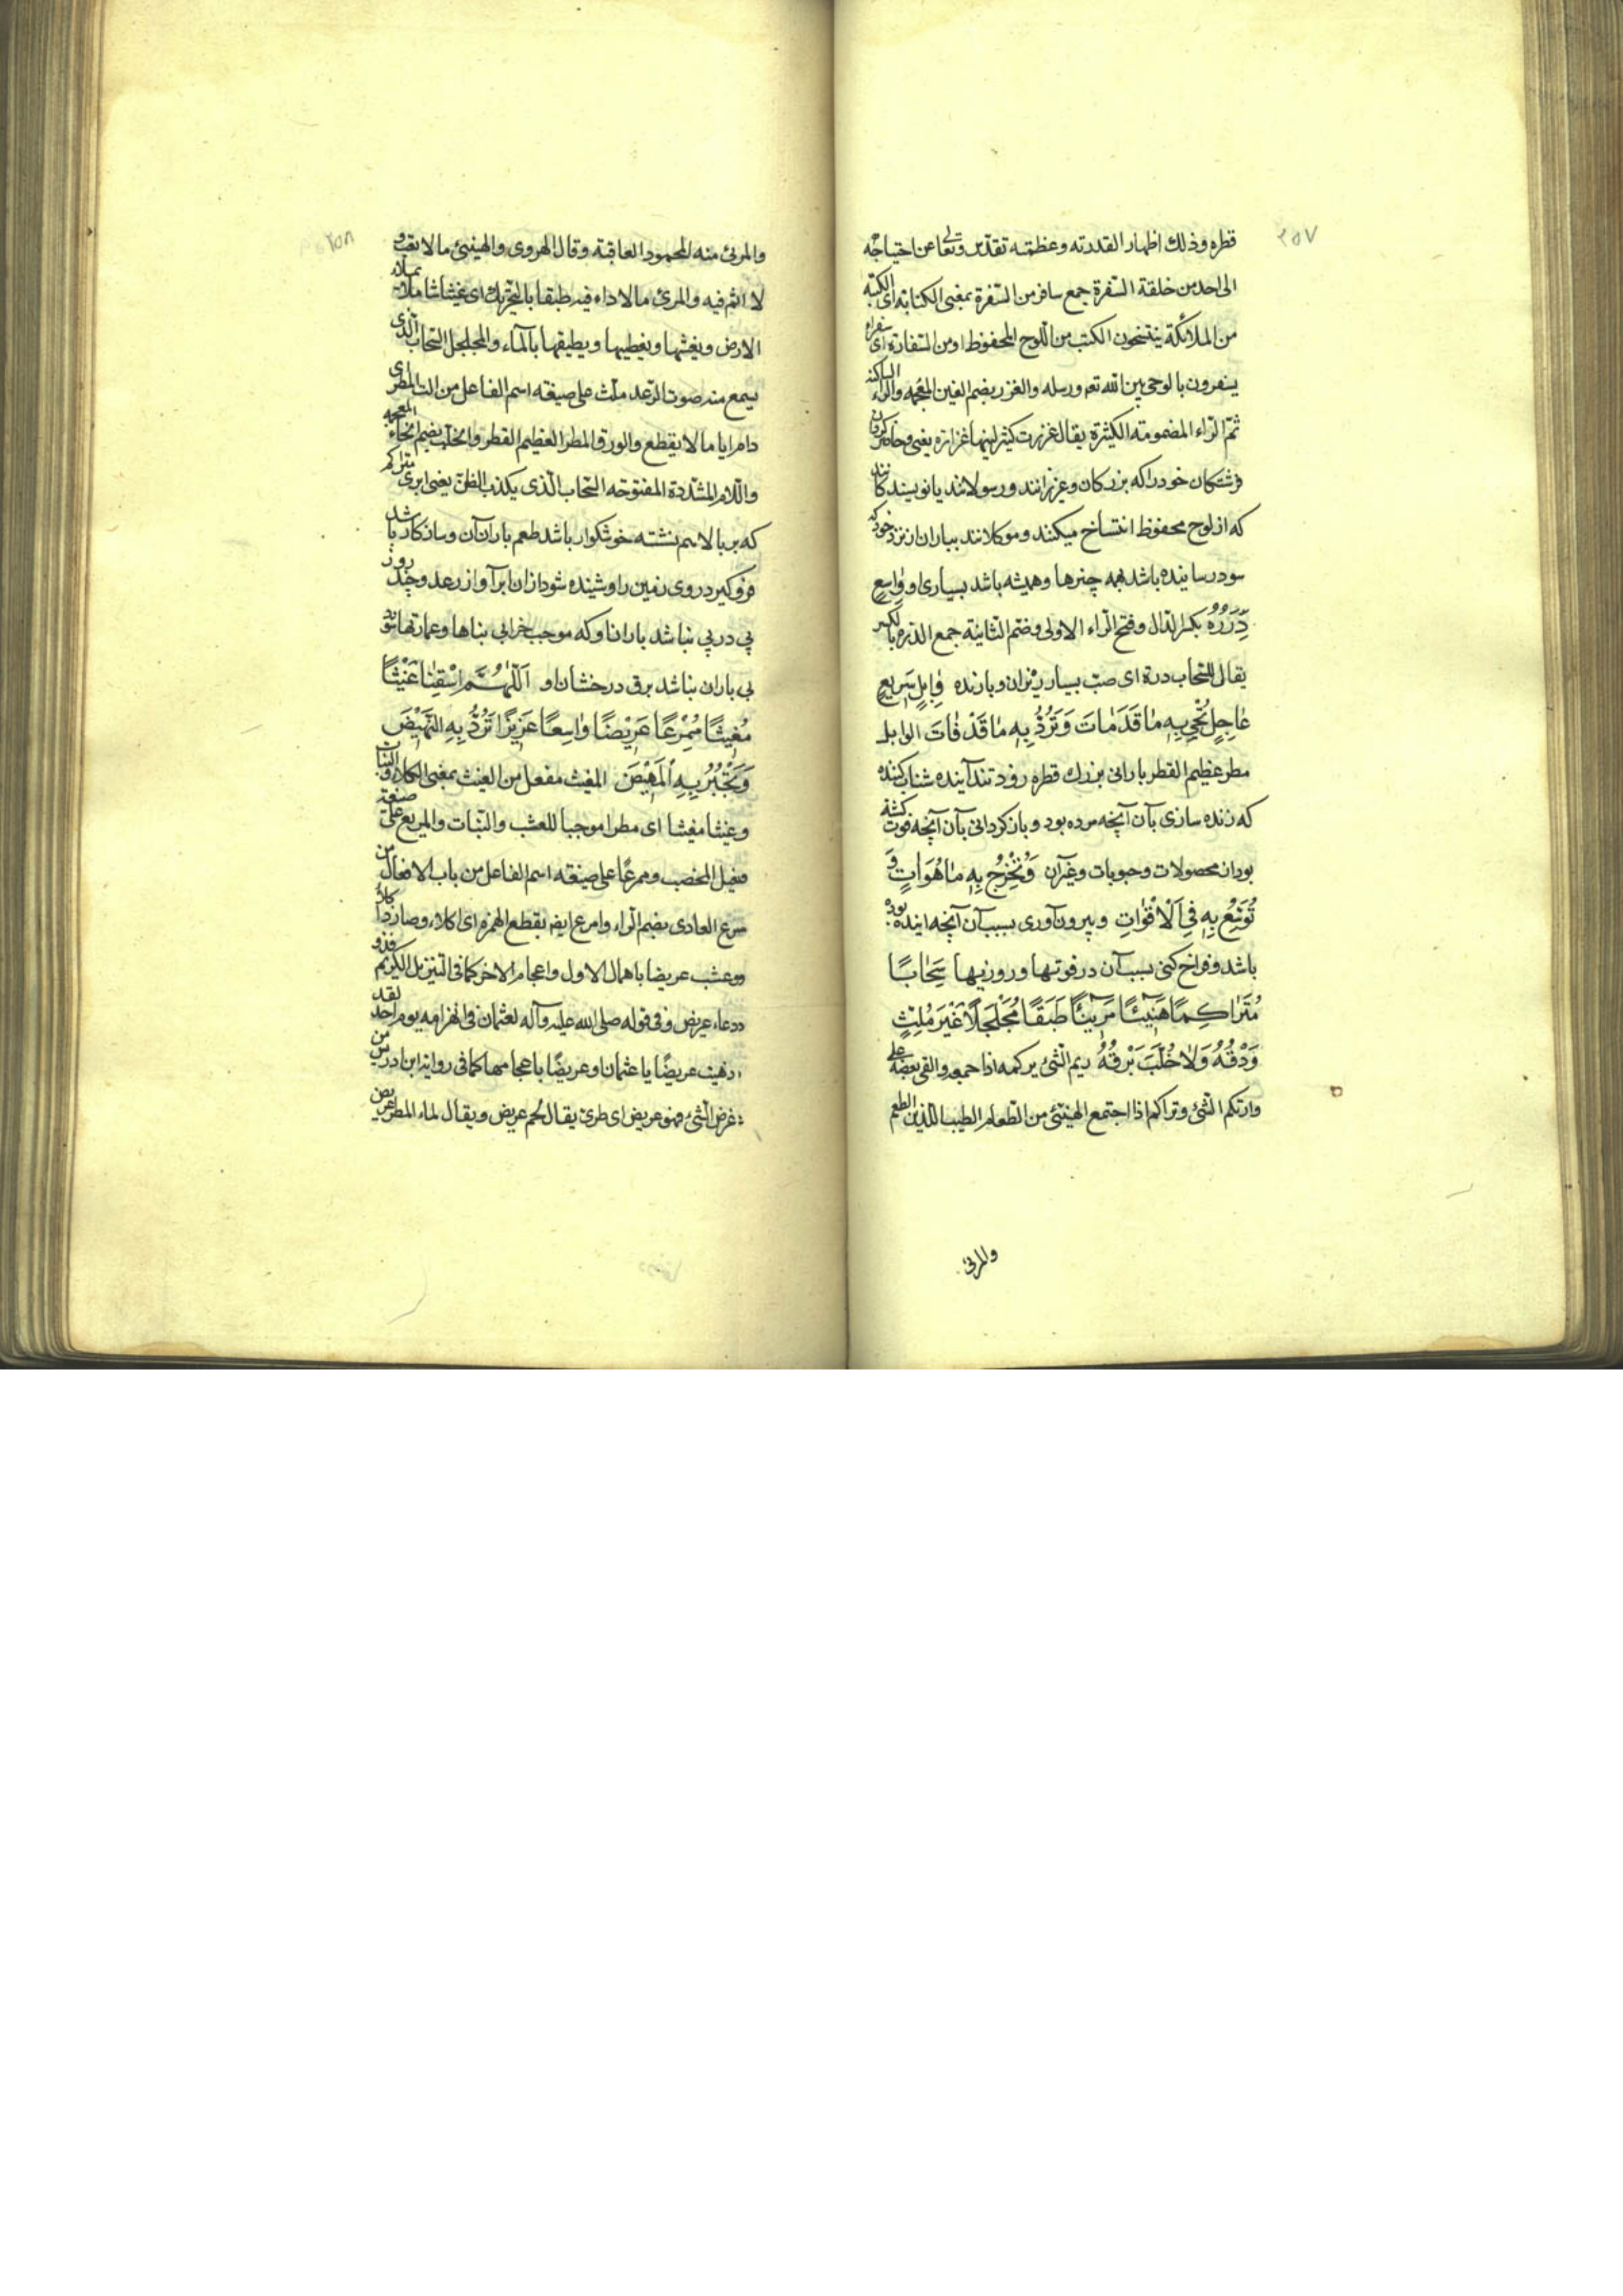 ٢٥٧
قطره وذلك اظهار القدرته وعظمته تقدّس وتعالى عن احتياجه
الى احد من خلقه السفرة جمع سافر من السفرة بمعنى الكتابة اى الكتبة
من الملائكة ينتسخون الكتب من اللوح المحفوظ او من السفارة اى سفراء
يسفرون بالوحى بين الله تعه ورسله والغزر بضم الغين المعجمه والراء الساكنة
ثمّ الرّاء المضمومته الكثرة يقال غزرت كثر لبنها غزارة يعنى وحاضر كردان
فرشتگان خود را كه بزركان وعزيزانند ورسولانند يا نويسندكانند
كه از لوح محفوظ انتساخ ميكنند وموكلانند بباران از نزد خود كه
سود رساننده باشد همه چيزها وهميشه باشد بسيارى او وَاسِعٍ
دِرَرُهُ بكسر الدّال وفتح الرّاء الاولى وضم الثانية جمع الدرة بالكسر
يقال للسّحاب درة اى صبّ بسيار ريزان وبارنده وَابِلٍ سَرِيعٍ
عَاجِلٍ تُحْيِي بِهِ مَا قَدْ مَاتَ وَتَرُدُّ بِهِ مَا قَدْ فَاتَ الوابل
مطر عظيم القطر بارانى بزرك قطره زود تند آينده شتاب كننده
كه زنده سازى بآن آنچه مرده بود وباز كردانى بآن آنچه فوت كشته
بود از محصولات وحبوبات وغير آن وَتُخْرِجُ بِهِ مَا هُوَ آتٍ وَ
تُوَسِّعُ بِهِ فِي الْأَقْوَاتِ وبيرون آورى بسبب آن آنچه آينده بوده
باشد وفراخ كنى بسبب آن در قوتها وروزيها سَحَابًا
مُتَرَاكِمًا هَنِيئًا مَرِيئًا طَبَقًا مُجَلْجَلًا غَيْرَ مُلِثٍّ
وَدْقُهُ وَلَا خُلَّبَ بَرْقُهُ ركم الشئ يركمه اذا جمعه والقى بعضه على
وارتكم الشئ وتراكم اذا اجتمع الهنيئ من الطعام الطيب اللذيذ الطعم
والمرئ
٢٥٨
والمرئ منه المحمود العاقبة وقال الهروى والهنيئ ما لا تعب و
لا اثم فيه والمرئ ما لا داء فيه طبقا بالتحريك اى غيثا شاملا يملأ
الارض ويغشها ويغطيها ويطبقها بالماء والمجلجل السّحاب الذى
يسمع منه صوت الرّعد ملث على صيغته اسم الفاعل من الث المطر اى
دام اياما لا يقطع والودق المطر العظيم القطر والخلّب بضم الخاء المعجمه
واللام المشددة المفتوحة السّحاب الّذى يكذب الظنّ يعنى ابرى متراكم
كه بر بالا هم نشسته خوشكوار باشد طعم باران آن وسازكار باشد
فرو كيرد روى زمين را وشنيده شود از ان ابر آواز رعد وچند روز
پى در پى نباشد باران او كه موجب خرابى بناها وعمارتها شود
بى باران نباشد برق درخشان او اَللّٰهُمَّ اسْقِنَا غَيْثًا
مُغِيثًا مُمْرِعًا عَرِيضًا وَاسِعًا غَزِيرًا تَرُدُّ بِهِ النَّهِيضَ
وَتَجْبُرُ بِهِ الْمَهِيضَ المغيث مفعل من الغيث بمعنى الكلاء والنبات
وغيثا مغيثا اى مطرا موجبا للعشب والنّبات والمريع على صيغة
فعيل المخصب وممرعًا على صيغته اسم الفاعل من باب الافعال من
مرع الوادى بضم الراء وامرع ايضا بقطع الهمزه اى اكلاء وصار ذا كلأ
وعشب عريضا باهمال الاول واعجام الاخر كما فى التنزيل الكريم فذو
دعاء عريض وفى قوله صلى الله عليه وآله لعثمان فى انهزامه يوم احد لقد
ذهبت عريضًا يا عثمان او غريضًا باعجامهما كما فى رواية ابن ادريس من
غرض الشئ فهو غريض اى طرى يقال لحم غريض ويقال لماء المطر غريض